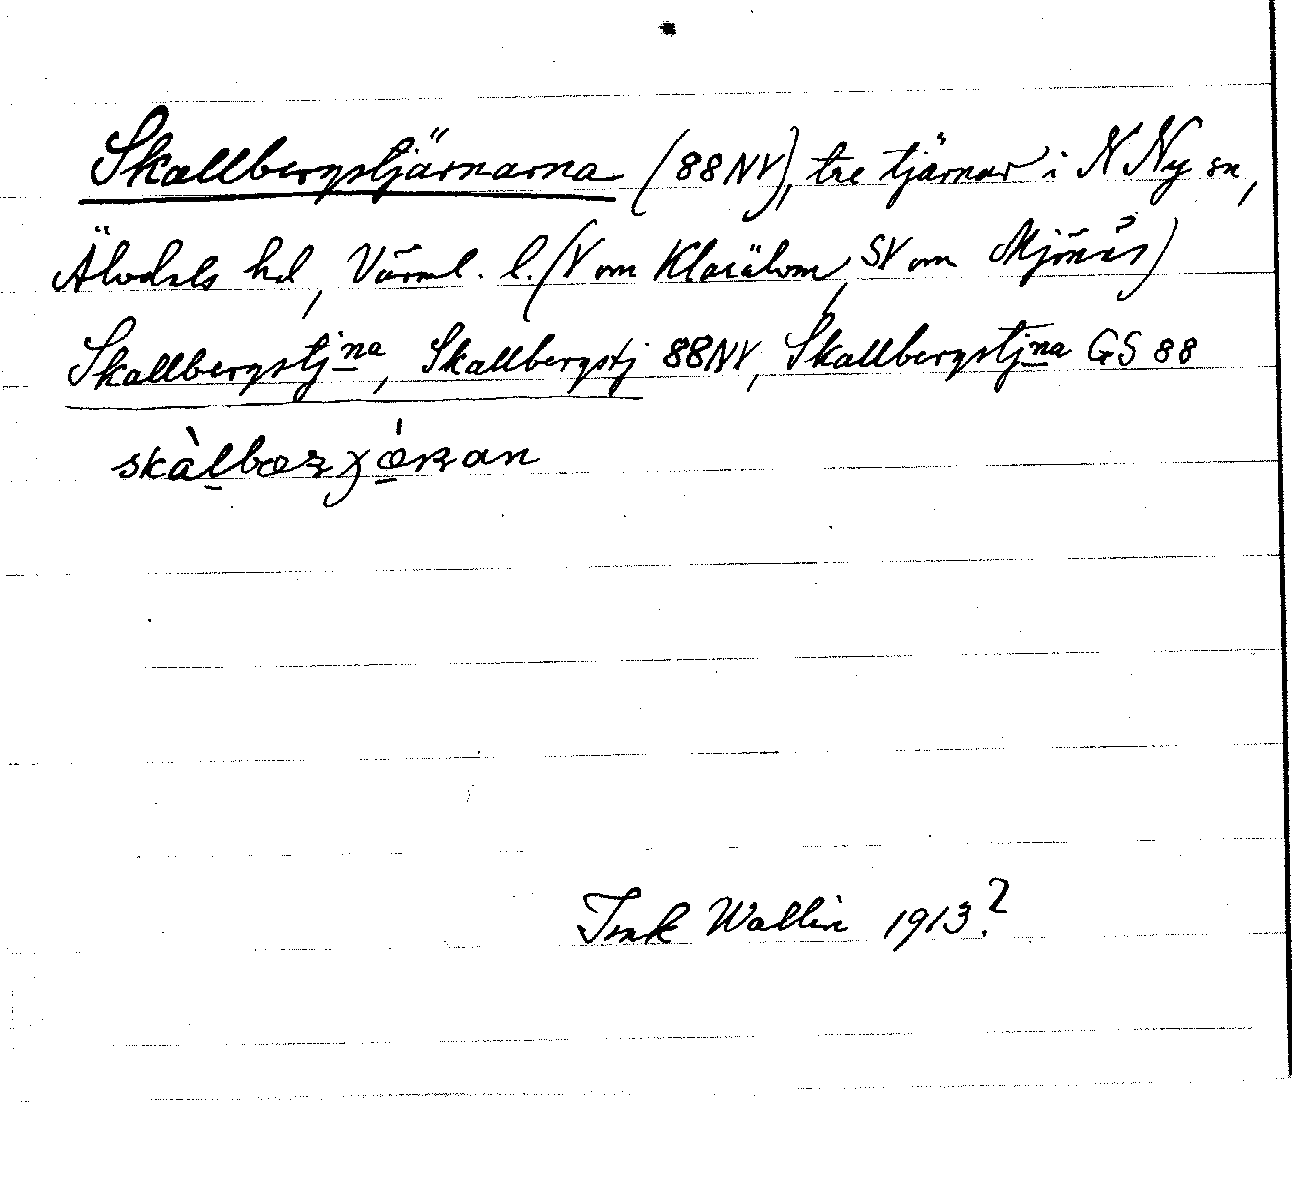 Skallbergstjärnarna (88NV), tre tjärnar i N Ny sn,
Älvdals hd, Värml. l. (V om Klarälven, SV om Mjönäs)
Skallbergstjna, Skallbergstj 88NV, Skallbergstjna GS 88
Wallin 1913?